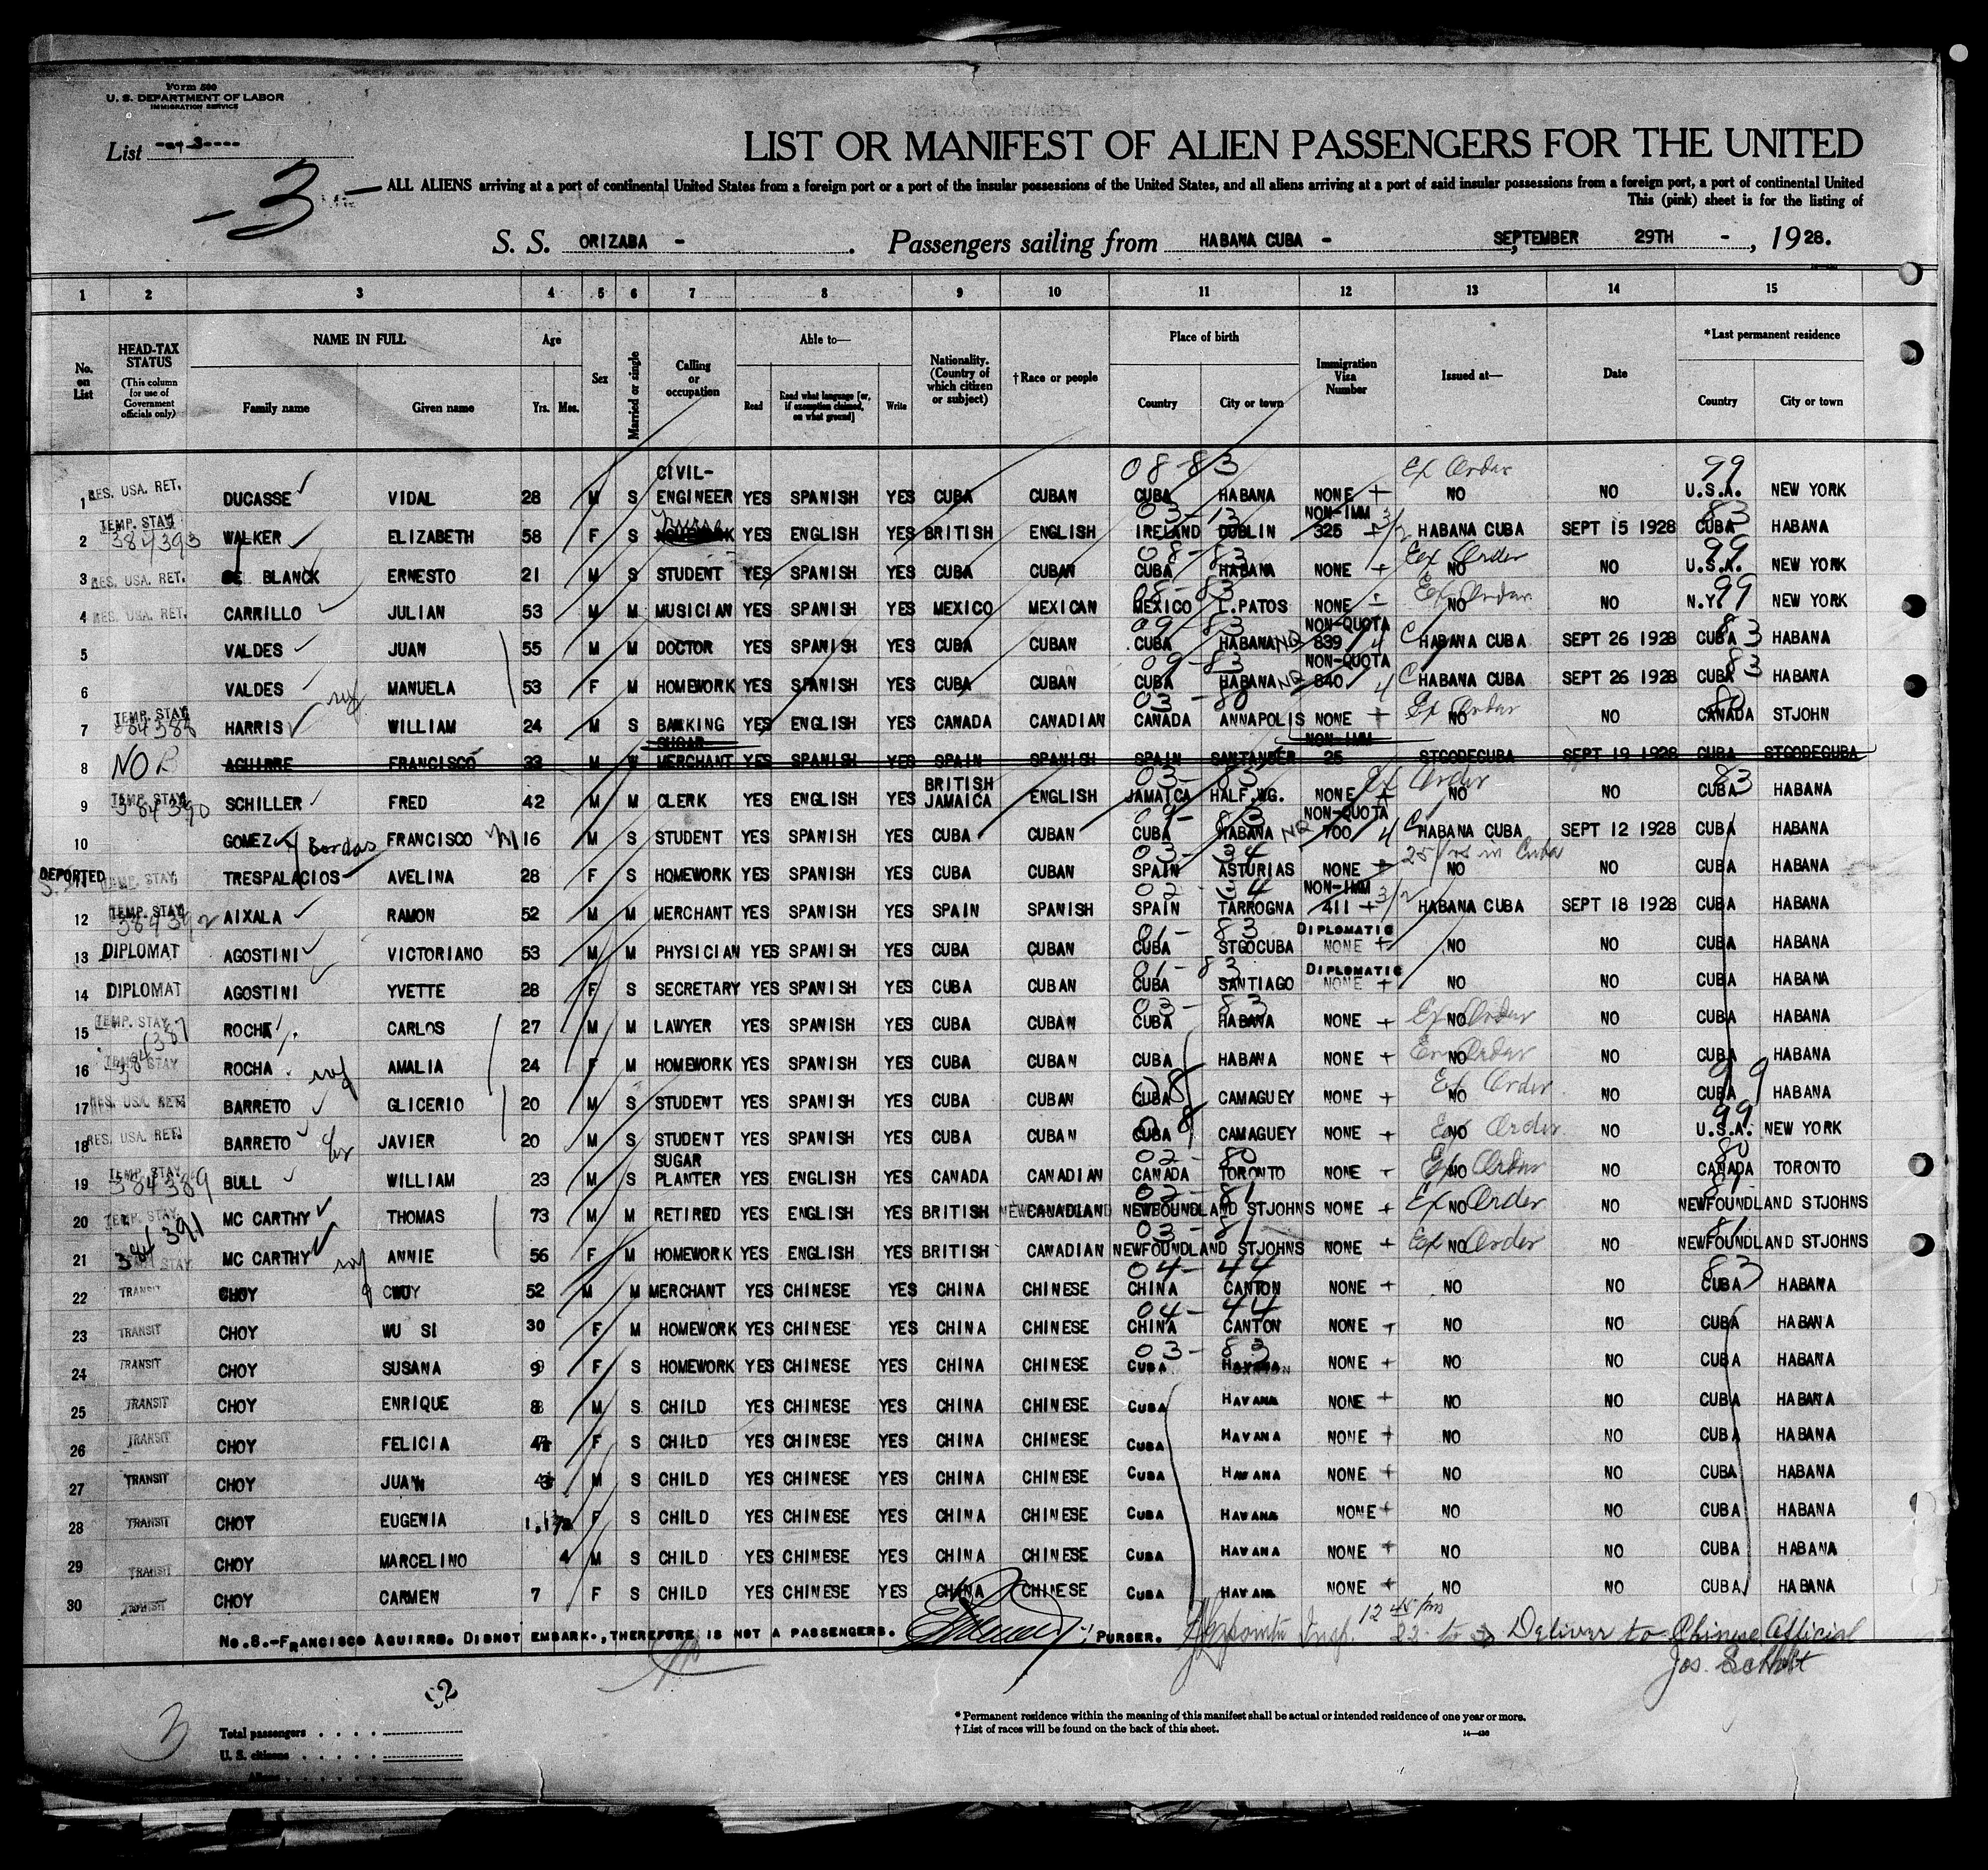 Form 500
U. S. DEPARTMENT OF LABOR
IMMIGRATION SERVICE
List 3
-3-
LIST OR MANIFEST OF ALIEN PASSENGERS FOR THE UNITED
ALL ALIENS arriving at a port of continental United States from a foreign port or a port of the insular possessions of the United States, and all aliens arriving at a port of said insular possessions from a foreign port, a port of continental United
This (pink) sheet is for the listing of
S. S. ORIZABA - . Passengers sailing from HABANA CUBA - , SEPTEMBER 29TH - , 1928.
1 2 3 4 5 6 7 8 9 10 11 12 13 14 15
No. on List
HEAD-TAX STATUS (This column for use of Government officials only)
NAME IN FULL Family name Given name
Age Yrs. Mos.
Sex
Married or single
Calling or occupation
Able to— Read Read what language [or, if exemption claimed, on what ground] Write
Nationality. (Country of which citizen or subject)
†Race or people
Place of birth Country City or town
Immigration Visa Number
Issued at—
Date
*Last permanent residence Country City or town
CIVIL- 08-83 Ex Order 99
1 RES. USA. RET. DUCASSE VIDAL 28 M S ENGINEER YES SPANISH YES CUBA CUBAN CUBA HABANA NONE + NO NO U.S.A. NEW YORK
TEMP. STAY Nurse 03-13 NON-IMM 3/2 83
2 384393 WALKER ELIZABETH 58 F S YES ENGLISH YES BRITISH ENGLISH IRELAND DUBLIN 325 HABANA CUBA SEPT 15 1928 CUBA HABANA
08-83 Ex Order 99
3 RES. USA. RET. DE BLANCK ERNESTO 21 M S STUDENT YES SPANISH YES CUBA CUBAN CUBA HABANA NONE + NO NO U.S.A. NEW YORK
08-83 Ex Order 99
4 RES. USA. RET. CARRILLO JULIAN 53 M M MUSICIAN YES SPANISH YES MEXICO MEXICAN MEXICO L.PATOS NONE NO NO N.Y. NEW YORK
09-83 NON-QUOTA 83
5 VALDES JUAN 55 M M DOCTOR YES SPANISH YES CUBA CUBAN CUBA HABANA NQ 839 4 C HABANA CUBA SEPT 26 1928 CUBA HABANA
09-83 NON-QUOTA 83
6 VALDES wf MANUELA 53 F M HOMEWORK YES SPANISH YES CUBA CUBAN CUBA HABANA NQ 840 4 C HABANA CUBA SEPT 26 1928 CUBA HABANA
TEMP. STAY 03-80 Ex Order 80
7 384388 HARRIS WILLIAM 24 M S BANKING YES ENGLISH YES CANADA CANADIAN CANADA ANNAPOLIS NONE + NO NO CANADA STJOHN
SUGAR NON-IMM
8 NOB AGUIRRE FRANCISCO 33 M MERCHANT YES SPANISH YES SPAIN SPANISH SPAIN SANTANDER 25 STGODECUBA SEPT 19 1928 CUBA STGODECUBA
TEMP. STAY BRITISH 03-83 Ex Order 83
9 384390 SCHILLER FRED 42 M M CLERK YES ENGLISH YES JAMAICA ENGLISH JAMAICA HALF.WG. NONE + NO NO CUBA HABANA
09-83 NON-QUOTA
10 GOMEZ y Bordas FRANCISCO 16 M S STUDENT YES SPANISH YES CUBA CUBAN CUBA HABANA NQ 700 4 C HABANA CUBA SEPT 12 1928 CUBA HABANA
DEPORTED 03-34 25 yrs in Cuba
11 TEMP. STAY TRESPALACIOS AVELINA 28 F S HOMEWORK YES SPANISH YES CUBA CUBAN SPAIN ASTURIAS NONE + NO NO CUBA HABANA
TEMP. STAY 02-34 NON-IMM 3/2
12 384392 AIXALA RAMON 52 M M MERCHANT YES SPANISH YES SPAIN SPANISH SPAIN TARROGNA 411 + HABANA CUBA SEPT 18 1928 CUBA HABANA
01-83 DIPLOMATIC
13 DIPLOMAT AGOSTINI VICTORIANO 53 M M PHYSICIAN YES SPANISH YES CUBA CUBAN CUBA STGOCUBA NONE + NO NO CUBA HABANA
01-83 DIPLOMATIC
14 DIPLOMAT AGOSTINI YVETTE 28 F S SECRETARY YES SPANISH YES CUBA CUBAN CUBA SANTIAGO NONE + NO NO CUBA HABANA
TEMP. STAY 03-83 Ex Order
15 384387 ROCHA CARLOS 27 M M LAWYER YES SPANISH YES CUBA CUBAN CUBA HABANA NONE + NO NO CUBA HABANA
16 TEMP. STAY ROCHA wf AMALIA 24 F M HOMEWORK YES SPANISH YES CUBA CUBAN CUBA HABANA NONE + Ex Order NO NO CUBA HABANA
08 Ex Order 99
17 RES. USA. RET. BARRETO GLICERIO 20 M S STUDENT YES SPANISH YES CUBA CUBAN CUBA CAMAGUEY NONE + NO NO CUBA HABANA
08 Ex Order 99
18 RES. USA. RET. BARRETO br JAVIER 20 M S STUDENT YES SPANISH YES CUBA CUBAN CUBA CAMAGUEY NONE + NO NO U.S.A. NEW YORK
TEMP. STAY SUGAR 02-80 Ex Order 80
19 384389 BULL WILLIAM 23 M S PLANTER YES ENGLISH YES CANADA CANADIAN CANADA TORONTO NONE NO NO CANADA TORONTO
TEMP. STAY 02-81 Ex Order 81
20 384391 MC CARTHY THOMAS 73 M M RETIRED YES ENGLISH YES BRITISH CANADIAN NEWFOUNDLAND STJOHNS NONE + NO NO NEWFOUNDLAND STJOHNS
03-81 Ex Order 81
21 TEMP. STAY MC CARTHY wf ANNIE 56 F M HOMEWORK YES ENGLISH YES BRITISH CANADIAN NEWFOUNDLAND STJOHNS NONE + NO NO NEWFOUNDLAND STJOHNS
04-44 83
22 TRANSIT CHOY 52 M M MERCHANT YES CHINESE YES CHINA CHINESE CHINA CANTON NONE + NO NO CUBA HABANA
04-44
23 TRANSIT CHOY WU SI 30 F M HOMEWORK YES CHINESE YES CHINA CHINESE CHINA CANTON NONE + NO NO CUBA HABANA
03-83
24 TRANSIT CHOY SUSANA 9 F S HOMEWORK YES CHINESE YES CHINA CHINESE CUBA NONE + NO NO CUBA HABANA
25 TRANSIT CHOY ENRIQUE 8 M S CHILD YES CHINESE YES CHINA CHINESE CUBA HAVANA NONE + NO NO CUBA HABANA
26 TRANSIT CHOY FELICIA F S CHILD YES CHINESE YES CHINA CHINESE CUBA HAVANA NONE + NO NO CUBA HABANA
27 TRANSIT CHOY JUAN M S CHILD YES CHINESE YES CHINA CHINESE CUBA HAVANA NONE + NO NO CUBA HABANA
28 TRANSIT CHOY EUGENIA F S CHILD YES CHINESE YES CHINA CHINESE CUBA HAVANA NONE + NO NO CUBA HABANA
29 TRANSIT CHOY MARCELINO 4 M S CHILD YES CHINESE YES CHINA CHINESE CUBA HAVANA NONE + NO NO CUBA HABANA
30 TRANSIT CHOY CARMEN 7 F S CHILD YES CHINESE YES CHINA CHINESE CUBA HAVANA NONE + NO NO CUBA HABANA
No.8.-FRANCISCO AGUIRRE. DIDNOT EMBARK., THEREFORE IS NOT A PASSENGERS. PURSER. Insp. 12 45 pm 22 to 30 Deliver to Chinese Official
Jos.
92
3
Total passengers . . . .
U. S. citizens . . . . .
Aliens . . . . . .
* Permanent residence within the meaning of this manifest shall be actual or intended residence of one year or more.
† List of races will be found on the back of this sheet.
14—430